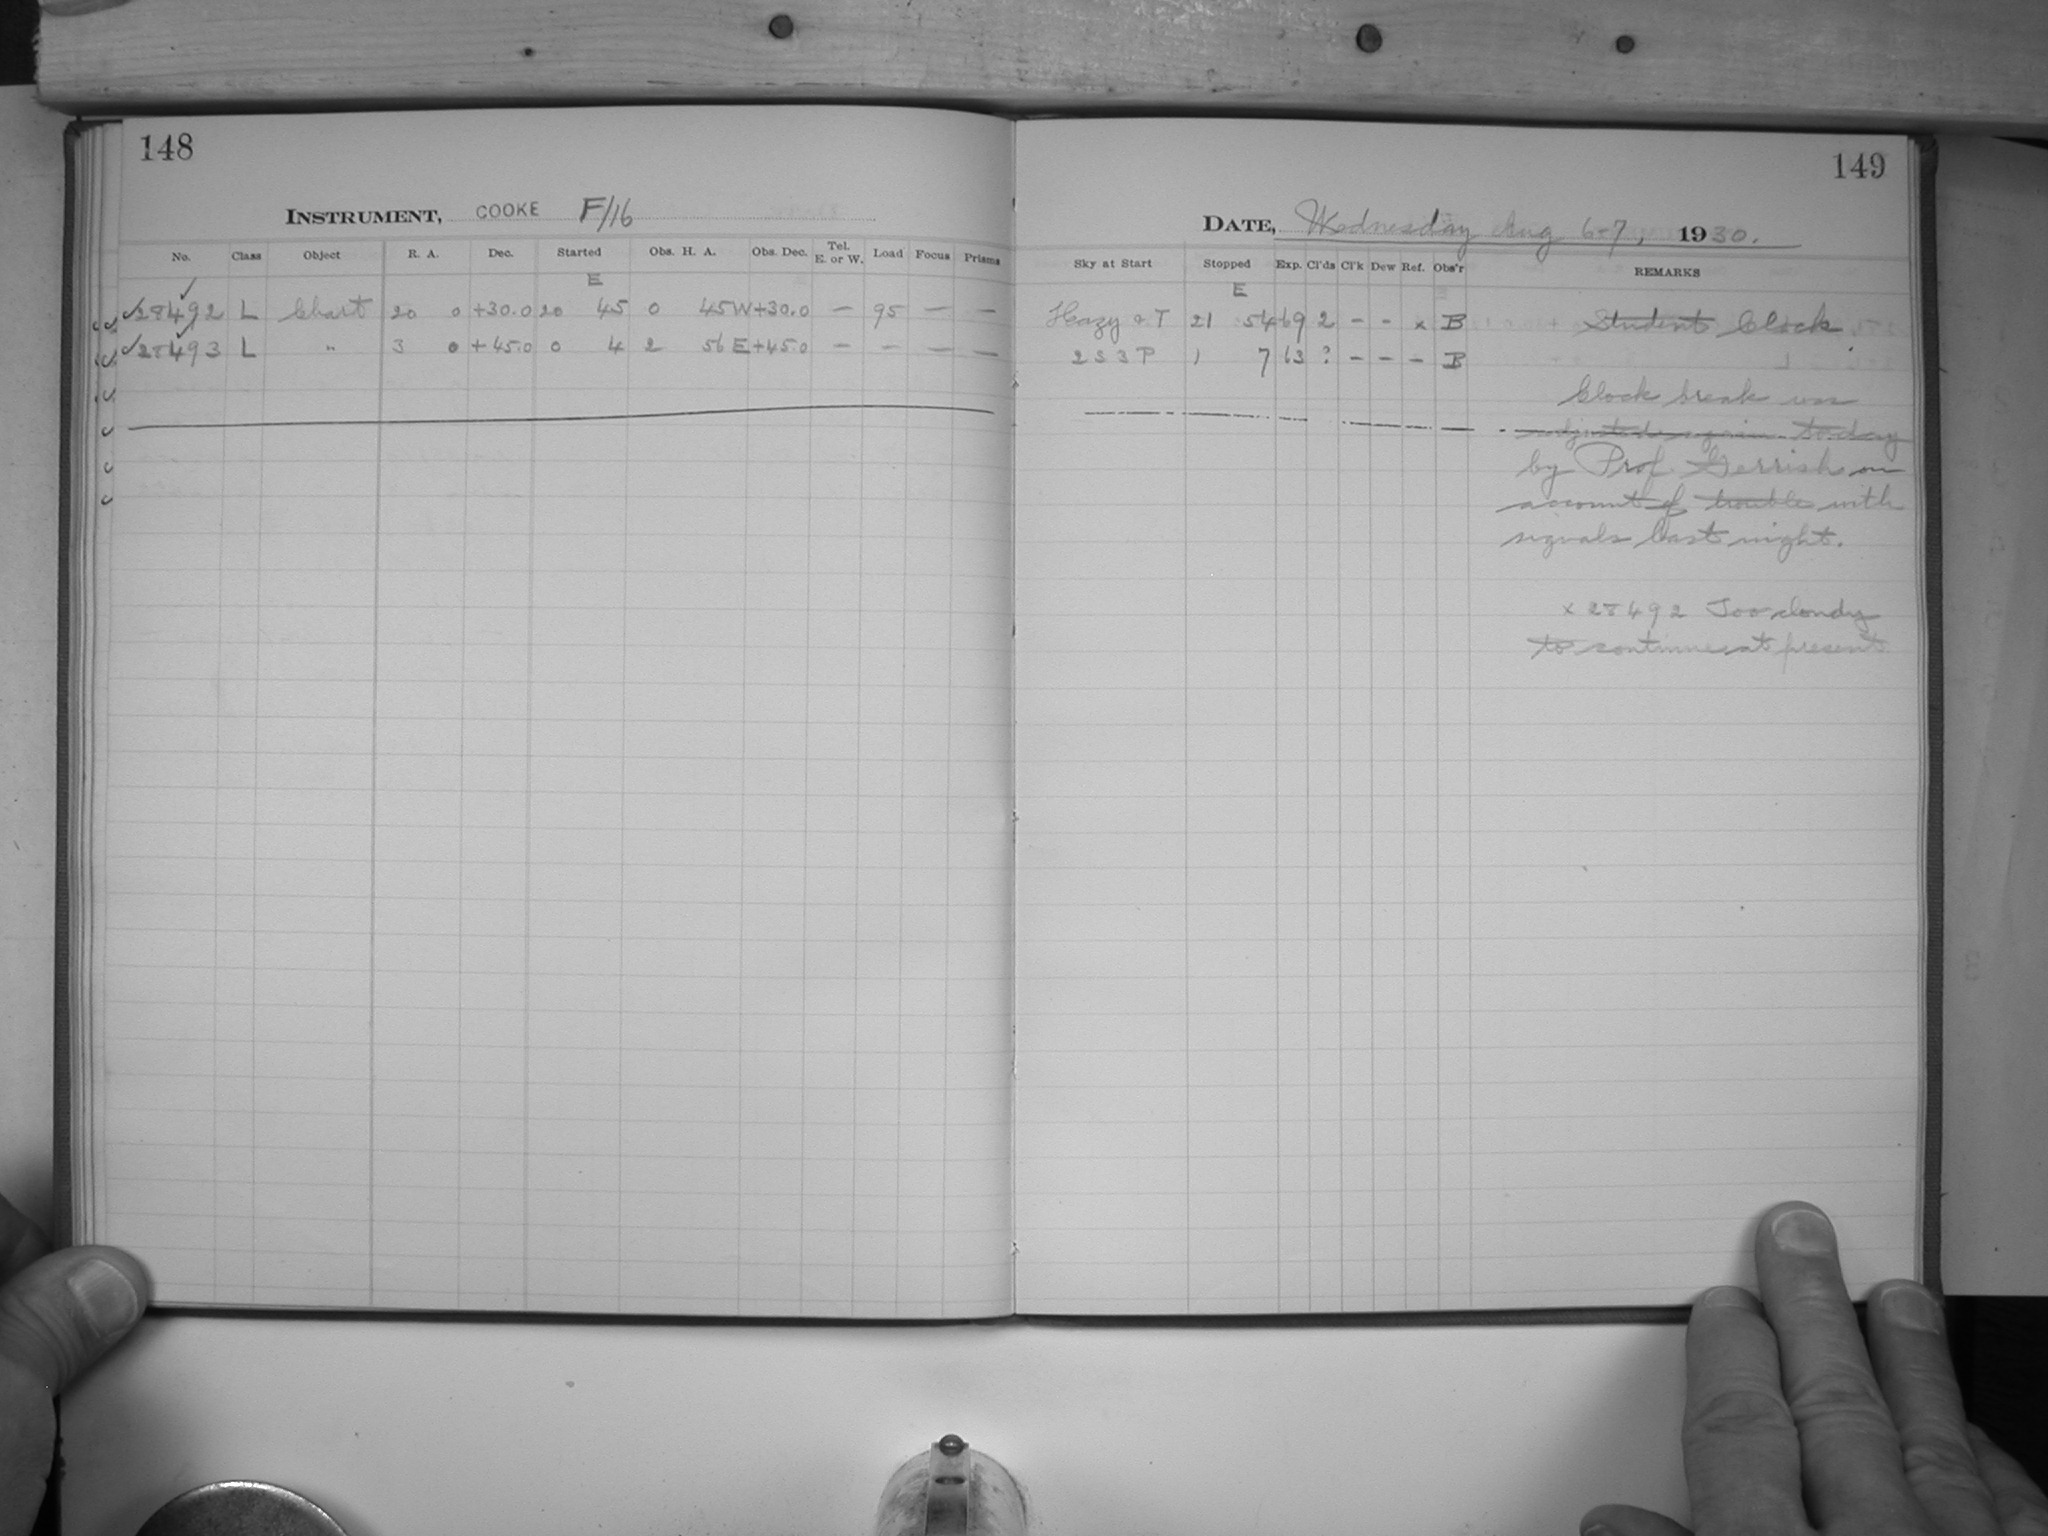 148
INSTRUMENT, COOKE F/16
No. Class Object R. A. Dec. Started Obs. H. A. Obs. Dec. Tel. E. or W. Load Focus Prisms
E
28492 L Chart 20 0 +30.0 20 45 0 45 W +30.0 — 95 — —
28493 L " 3 0 +45.0 0 4 2 56 E +45.0 — — — —
149
DATE, Wednesday Aug 6-7, 1930.
Sky at Start Stopped Exp. Cl'ds Cl'k Dew Ref. Obs'r REMARKS
E
Hazy & T 21 54 69 2 - - x B Student Clock
2 S 3 P 1 7 63 ? - - - B
Clock break was
adjusted again today
by Prof. Gerrish on
account of trouble with
signals last night.
x 28492 Too cloudy
to continue at present